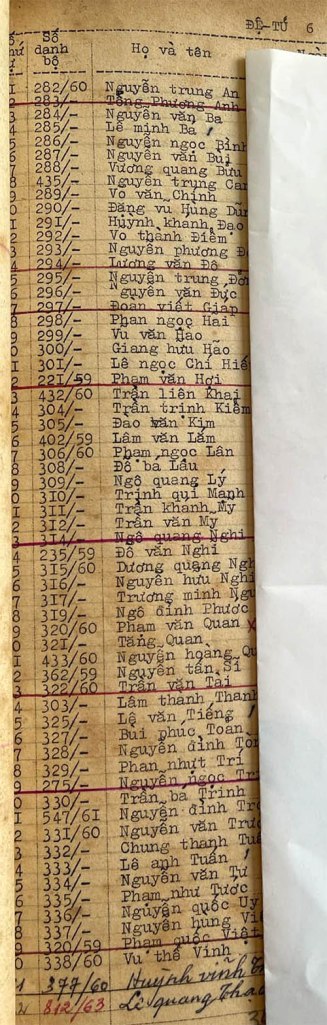 ĐỆ-TỨ 6
Số danh bộ Họ và tên
1 282/60 Nguyễn trung An
2 283/- Tống Phương Anh
3 284/- Nguyễn văn Ba
4 285/- Lê minh Ba
5 286/- Nguyễn ngọc Bình
6 287/- Nguyễn văn Bui
7 288/- Vương quang Bưu
8 435/- Nguyễn trung Can
9 289/- Vo văn Chính
0 290/- Đặng vu Hùng Dũn
1 291/- Huỳnh khanh Đạo
2 292/- Vo thành Điểm
3 293/- Nguyễn phương Đ
4 294/- Lương văn Độ
5 295/- Nguyễn trung Đôn
6 296/- guyễn văn Đực
7 297/- Đoàn viết Giáp
8 298/- Phan ngọc Hai
9 299/- Vu văn Hao
0 300/- Giang hưu Hão
1 301/- Lê ngọc Chí Hiế
2 221/59 Phạm văn Hơi
3 432/60 Trần liên Khai
4 304/- Trần trinh Kiêm
5 305/- Đao văn Kim
6 402/59 Lâm văn Lắm
7 306/60 Phạm ngọc Lân
8 308/- Đỗ ba Lầu
9 309/- Ngô quang Lý
0 310/- Trịnh quí Mạnh
1 311/- Trần khanh My
2 312/- Trần văn My
3 314/- Ngô quang Nghi
4 235/59 Đỗ văn Nghi
5 315/60 Dương quang Ngh
6 316/- Nguyễn hưu Nghi
7 317/- Trương minh Ngu
8 319/- Ngô đình Phước
9 320/60 Pham văn Quan x
0 321/- Tăng Quan
1 433/60 Nguyễn hoang Qu
2 362/59 Nguyễn tấn Sĩ
3 322/60 Trần văn Tai
4 303/- Lâm thanh Thanh
5 325/- Lê văn Tiếng
6 327/- Bui phuc Toan
7 328/- Nguyễn đình Tòn
8 329/- Phan nhựt Trí
9 275/- Nguyễn ngọc Tri
0 330/- Trần ba Trinh
1 547/61 Nguyễn đình Trọ
2 331/60 Nguyễn văn Trươ
3 332/- Chung thanh Tuấ
4 333/- Lê anh Tuấn
5 334/- Nguyễn văn Tư
6 335/- Phạm như Tước
7 336/- Nguyễn quốc Uy
8 337/- Nguyễn hùng Vi
9 320/59 Phạm quốc Việt
0 338/60 Vu thế Vinh
1 377/60 Huỳnh vinh
2 812/63 Lê quang Thao